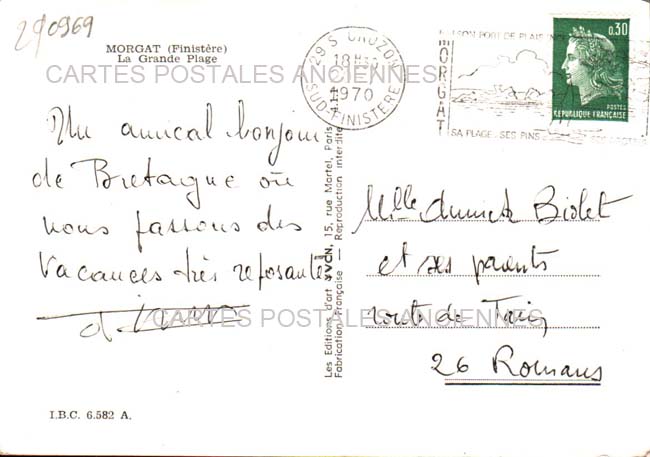 290969
MORGAT (Finistère)
La Grande Plage
CARTES POSTALES ANCIENNES
Un amical bonjour
de Bretagne où
nous passons des
vacances très reposantes
CARTES POSTALES ANCIENNES
I.B.C. 6.582 A.
Les Editions d'art YVON, 15, rue Martel, Paris
Fabrication Française — Reproduction interdite
29 S CROZON
18H
1970
SUD-FINISTERE
SON PORT DE PLAISANCE
MORGAT
SA PLAGE SES PINS
0,30
POSTES
REPUBLIQUE FRANÇAISE
Mlle Annick Biolet
et ses parents
route de
26 Romans